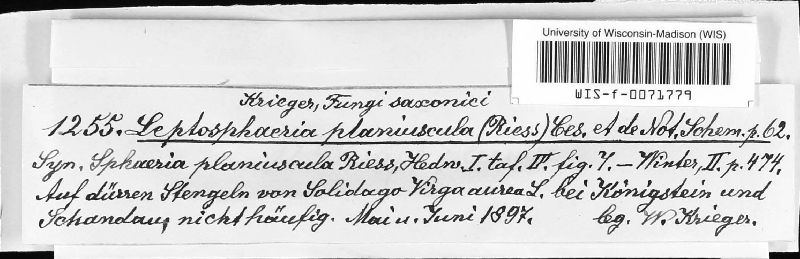 University of Wisconsin-Madison (WIS)
WIS-f-0071779
Krieger, Fungi saxonici
1255. Leptosphaeria planiuscula (Riess) Ces. et de Not. Schem. p. 62.
Syn. Sphaeria planiuscula Riess, Hedw. I. taf. IV. fig. 7. – Winter, II. p. 474.
Auf dürren Stengeln von Solidago Virga aurea L. bei Königstein und
Schandau, nicht häufig. Mai u. Juni 1897. leg. W. Krieger.